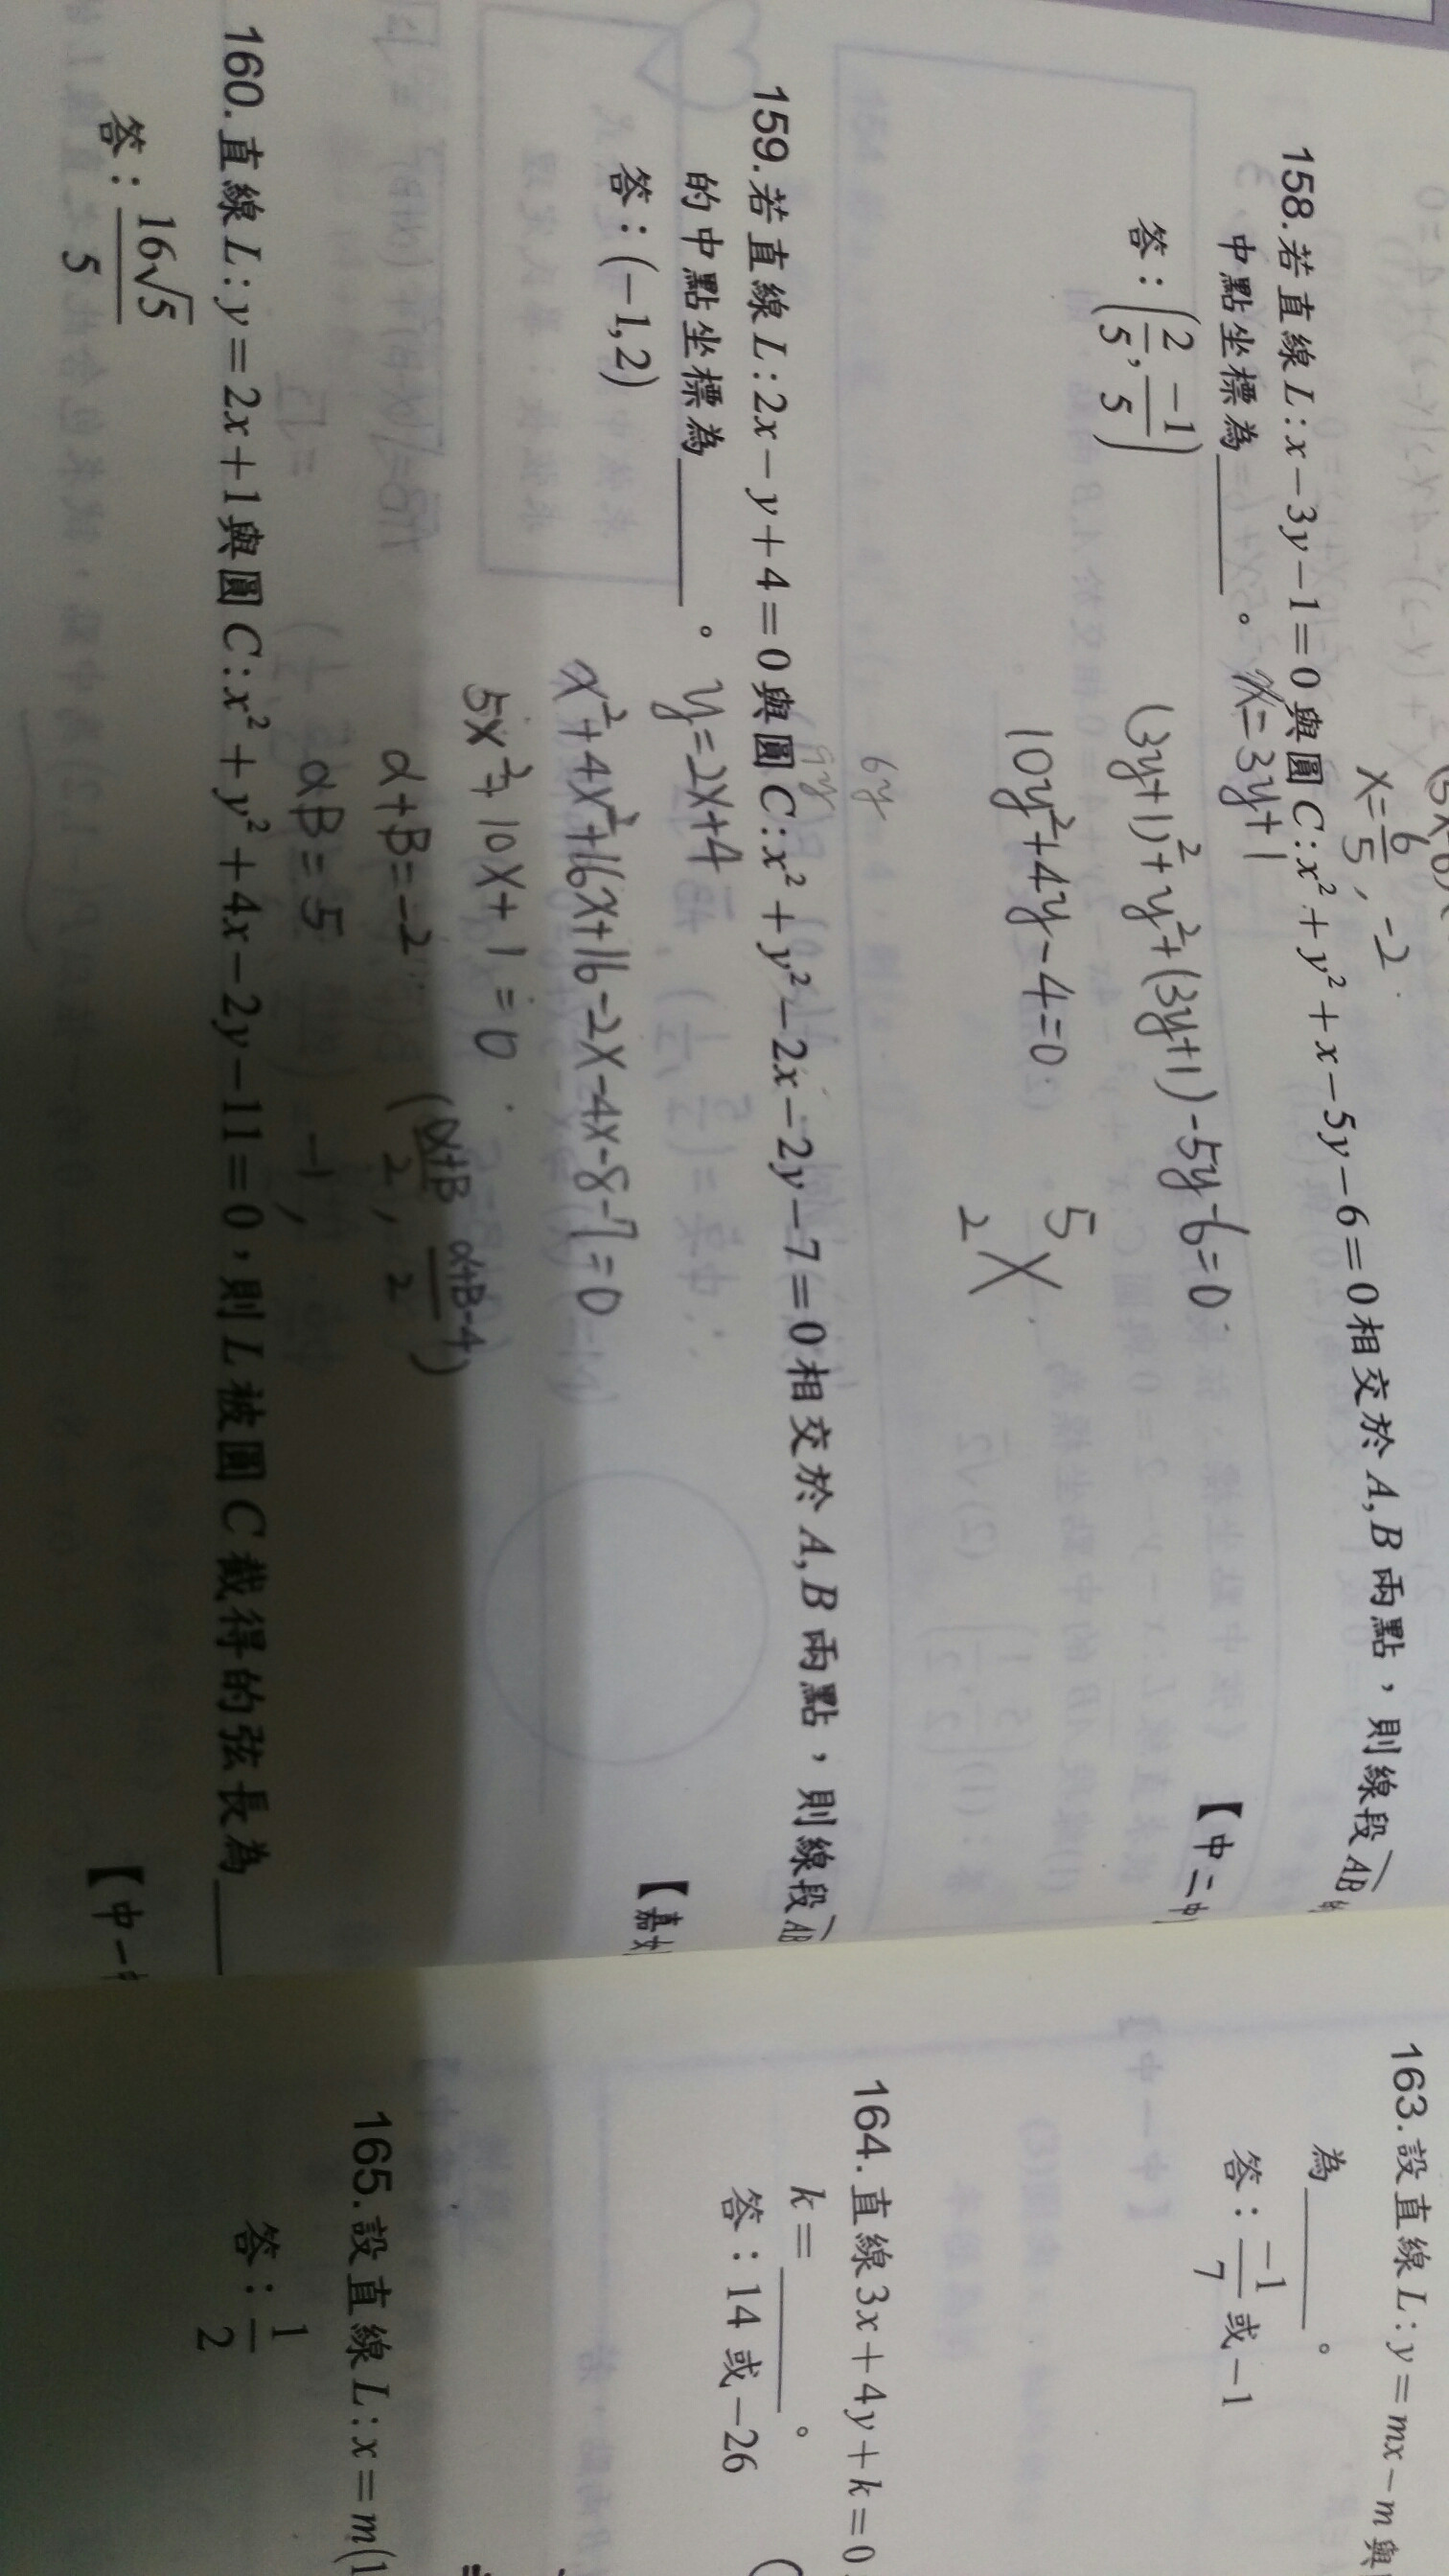 x=6/5, -2
158.若直線L:x-3y-1=0與圓C:x²+y²+x-5y-6=0相交於A,B兩點，則線段AB
中點坐標為______。
x=3y+1
答：(2/5, -1/5)
(3y+1)²+y²+(3y+1)-5y-6=0
10y²+4y-4=0
5
2
159.若直線L:2x-y+4=0與圓C:x²+y²-2x-2y-7=0相交於A,B兩點，則線段AB
的中點坐標為______。
y=2x+4
答：(-1,2)
x²+4x²+16x+16-2x-4x-8-7=0
5x²+10x+1=0
α+β=-2
(α+β/2, α+β-4/2)
αβ=5
-1,
160.直線L:y=2x+1與圓C:x²+y²+4x-2y-11=0，則L被圓C截得的弦長為____
答：16√5/5
【中一中
163.設直線L:y=mx-m與
為______。
答：-1/7或-1
164.直線3x+4y+k=0
k=______。
答：14或-26
165.設直線L:x=m(1
答：1/2